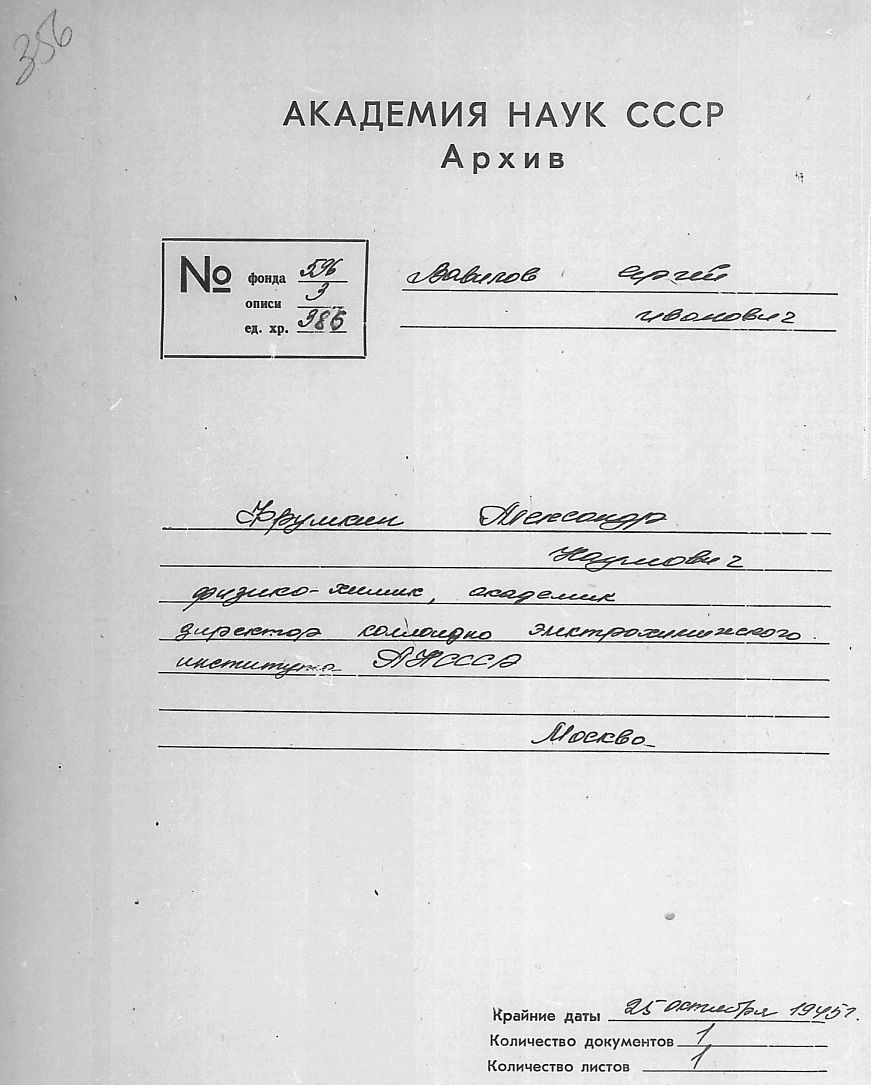 356
АКАДЕМИЯ НАУК СССР
Архив
№ фонда 596
описи 3
ед. хр. 386
Вавилов Сергей
Иванович
Фрумкин Александр
Наумович
физико-химик, академик
директор коллоидно электрохимического
института АН СССР
Москва
Крайние даты 25 октября 1945 г.
Количество документов 1
Количество листов 1